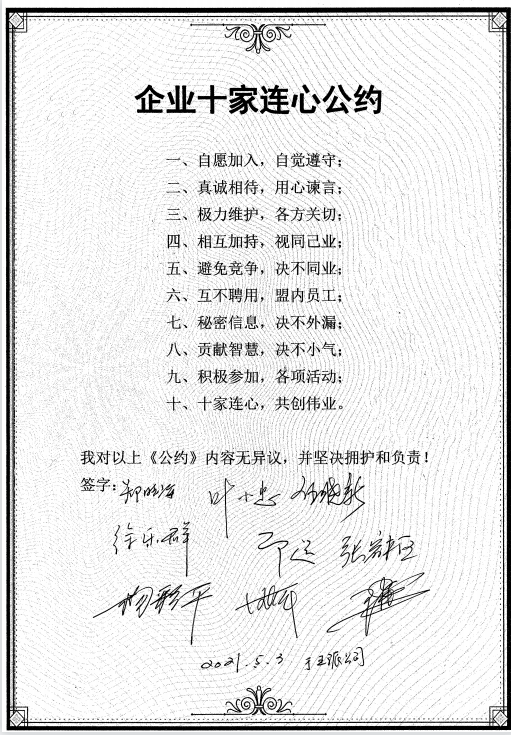 企业十家连心公约
一、自愿加入，自觉遵守；
二、真诚相待，用心谏言；
三、极力维护，各方关切；
四、相互加持，视同己业；
五、避免竞争，决不同业；
六、互不聘用，盟内员工；
七、秘密信息，决不外漏；
八、贡献智慧，决不小气；
九、积极参加，各项活动；
十、十家连心，共创伟业。
我对以上《公约》内容无异议，并坚决拥护和负责！
签字： 叶小忠
徐乐群
杨彩平
2021.5.3 公司